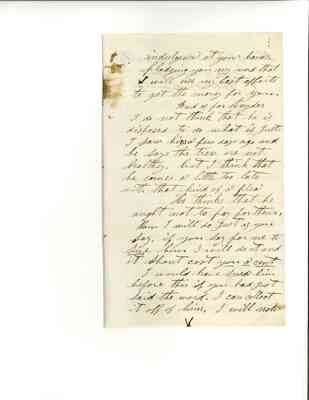 indulgence at your hands
pledging you my word that
I will use my best efforts
to get the money for you.
And as for Snyder
I do not think that he is
disposed to do what is just
I saw him a few days ago and
he says the trees are not
healthy. but I think that
he comes a little too late
with that kind of a plea
He thinks that he
ought not to pay for them.
Now I will do just as you
say, if you say for me to
sue him I will do it and
it shant cost you a cent
I would have sued him
before this if you had just
said the word. I can collect
it off of him. I will not